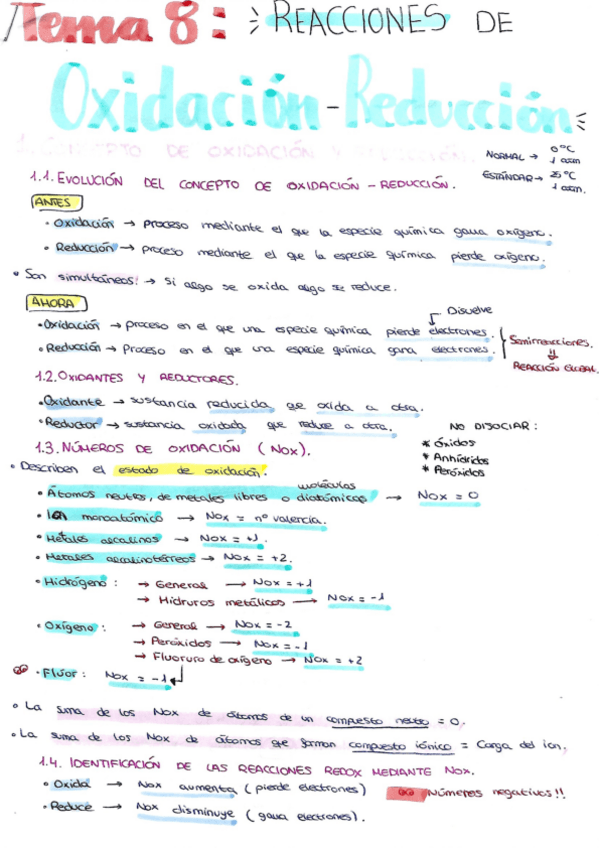 Tema 8: REACCIONES DE
Oxidación-Reducción
1. CONCEPTO DE OXIDACIÓN Y REDUCCIÓN.
NORMAL → 0 ºC
1 atm
ESTÁNDAR → 25 ºC
1 atm.
1.1. EVOLUCIÓN DEL CONCEPTO DE OXIDACIÓN-REDUCCIÓN.
ANTES
· Oxidación → proceso mediante el que la especie química gana oxígeno.
· Reducción → proceso mediante el que la especie química pierde oxígeno.
• Son simultáneos! → Si algo se oxida algo se reduce.
AHORA
Disuelve
· Oxidación → proceso en el que una especie química pierde electrones.
· Reducción → Proceso en el que una especie química gana electrones.
Semirreacciones.
⇓
REACCIÓN GLOBAL.
1.2. OXIDANTES Y REDUCTORES.
· Oxidante → sustancia reducida que oxida a otra.
· Reductor → sustancia oxidada que reduce a otra.
NO DISOCIAR:
* Óxidos
* Anhídridos
* Peróxidos
1.3. NÚMEROS DE OXIDACIÓN (Nox).
• Describen el estado de oxidación.
moléculas
· Átomos neutros, de metales libres o diatómicas → Nox = 0
· Ión monoatómico → Nox = nº valencia.
· Metales alcalinos → Nox = +1.
· Metales alcalinotérreos → Nox = +2.
· Hidrógeno: → General → Nox = +1
→ Hidruros metálicos → Nox = -1
· Oxígeno: → General → Nox = -2
→ Peróxidos → Nox = -1
→ Fluoruro de oxígeno → Nox = +2
· Flúor: Nox = -1
• La suma de los Nox de átomos de un compuesto neutro = 0.
• La suma de los Nox de átomos que forman compuesto iónico = Carga del ion.
1.4. IDENTIFICACIÓN DE LAS REACCIONES REDOX MEDIANTE NOX.
· Oxida → Nox aumenta (pierde electrones)
Números negativos!!
· Reduce → Nox disminuye (gana electrones).